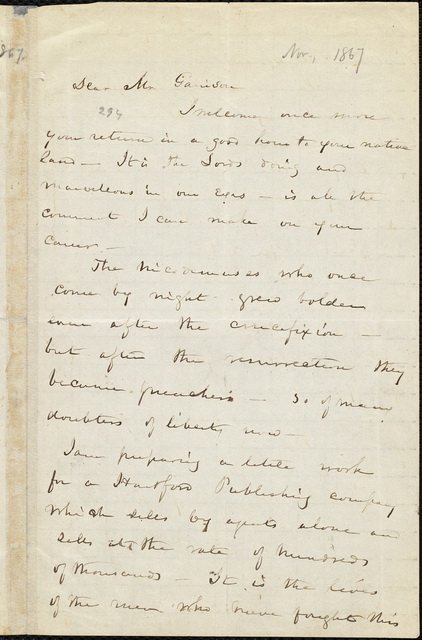 1867
Nov, 1867
Dear Mr Garrison
294
I welcome once more
your return in a good hour to your native
land – It is the Lords doing and
marvellous in our eyes – is all the
comment I can make on your
career –
The Nicodemuses who once
come by night grew bolder
even after the crucifixion –
but after the resurrection they
became preachers – So of many
doubters of liberty now –
I am preparing a little work
for a Hartford Publishing company
which sells by agents alone and
sells at the rate of hundreds
of thousands – It is the lives
of the men who have fought this